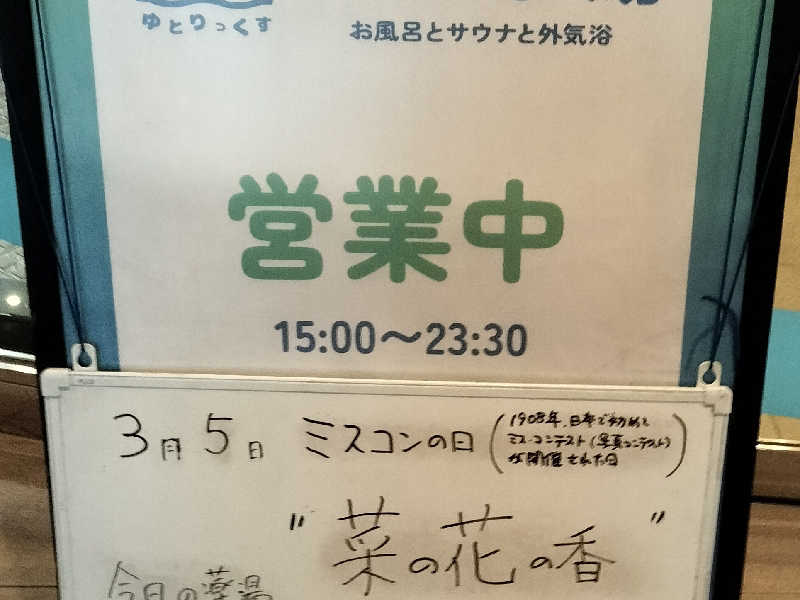 ゆとりっくす
お風呂とサウナと外気浴
営業中
15:00〜23:30
3月5日 ミスコンの日
(1908年、日本で初めて
ミス・コンテスト(写真コンテスト)
が開催された日)
"菜の花の香"
今日の薬湯